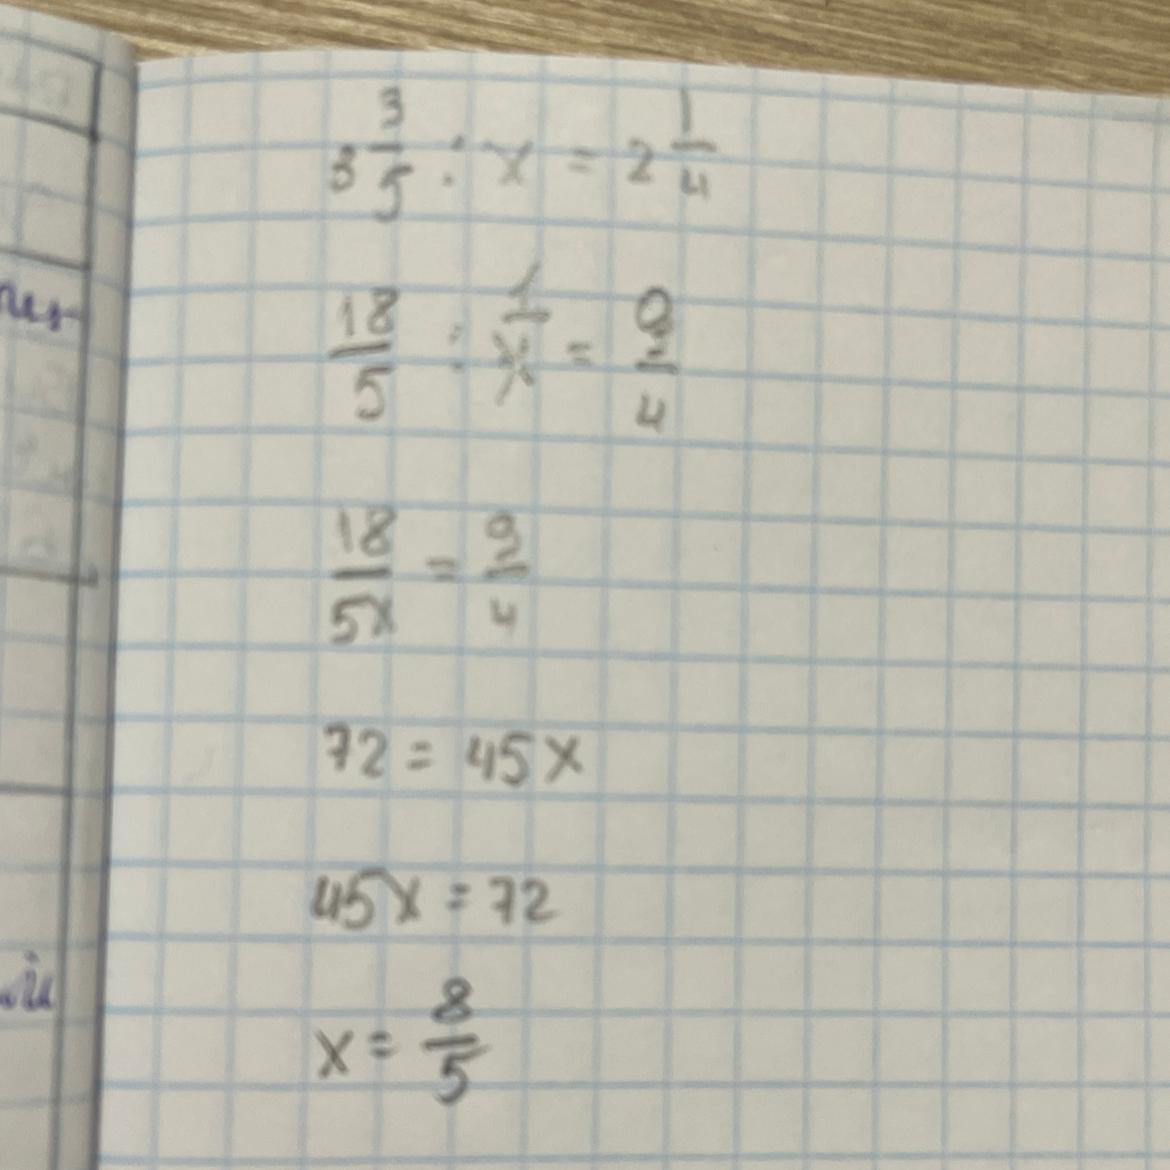 3 3/5 : x = 2 1/4
18/5 : 1/x = 9/4
18/5x = 9/4
72 = 45x
45x = 72
x = 8/5